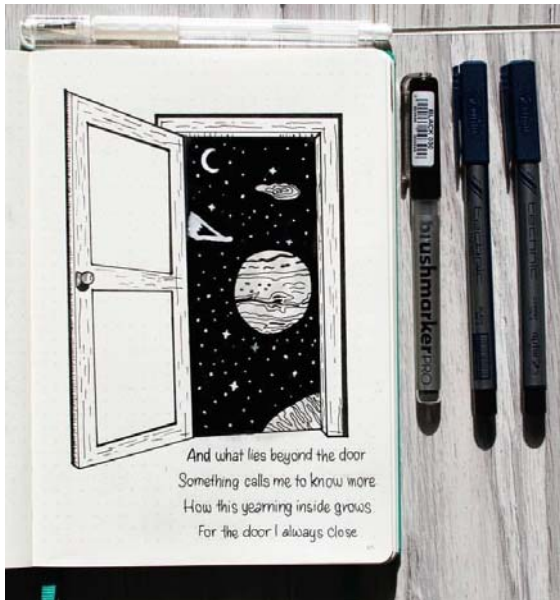 And what lies beyond the door
Something calls me to know more
How this yearning inside grows
For the door I always close
BLACK 030
brushmarkerPRO